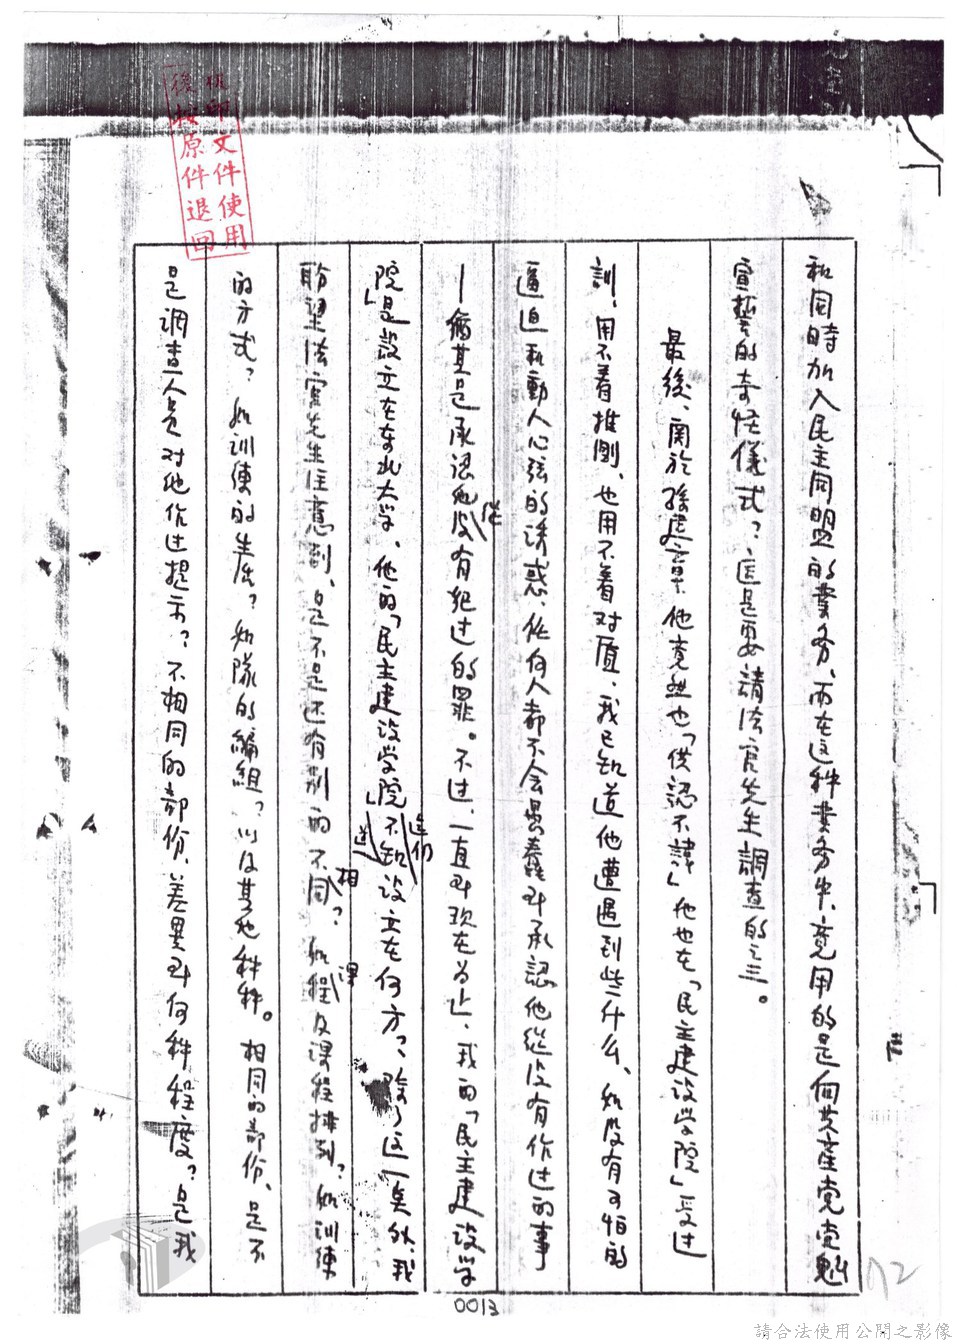 和同時加入民主同盟的業务、而在这种業务中、竟用的是向共產党党魁
宣誓的奇怪儀式？這是要請法官先生調查的之三。
最後、関於孫建章、他竟然也「供認不諱」他也在「民主建设学院」受过
訓、用不着推測、也用不着对质、我已知道他遭遇到些什么、如没有可怕的
逼迫和動人心弦的诱惑、任何人都不会愚蠢到承認他從没有作过的事
—尤其是承認他從没有犯过的罪。不过、一直到现在为止、我的「民主建设学
院」是設立在东北大学、他们的「民主建设学院」不知道设立在何方？、除了这一矣外、我
盼望法官先生注意到、是不是还有别的不相同？如課程及课程排列？如训練
的方式？如训練的生活？如隊的編組？以及其他种种。相同的部份、是不
是調查人员对他作过提示？不相同的部份、差異到何种程度？是我
机印文件使用
後按原件退回
0013
72
請合法使用公開之影像